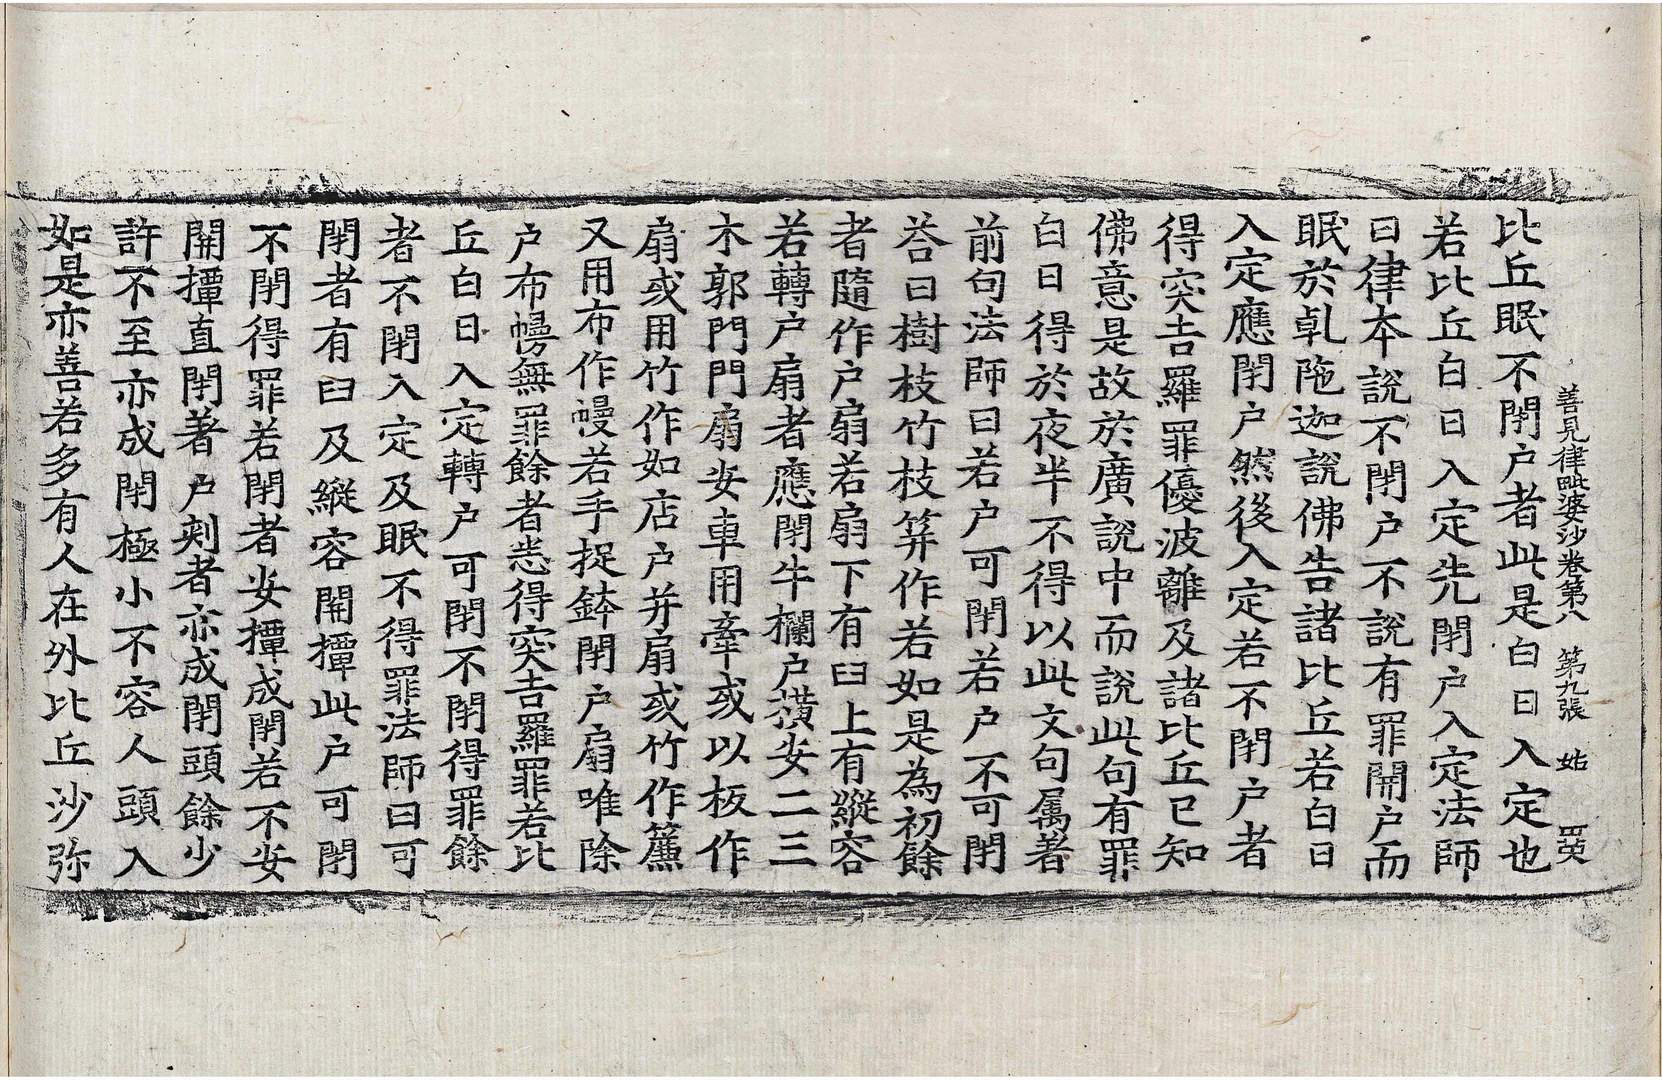 善見律毗婆沙卷第八　第九張　姑
比丘眠不閇户者此是白日入定也
若比丘白日入定先閇户入定法師
曰律本說不閇户不說有罪開户而
眠於乹陁迦說佛告諸比丘若白日
入定應閇户然後入定若不閇户者
得突吉羅罪優波離及諸比丘已知
佛意是故於廣說中而說此句有罪
白日得於夜半不得以此文句属著
前句法師曰若户可閇若户不可閇
荅曰樹枝竹枝箅作若如是為初餘
者隨作户扇若扇下有臼上有縱容
若轉户扇者應閇牛欄户撗安二三
木郭門門扇安車用牽或以板作
扇或用竹作如店户并扇或竹作簾
又用布作幔若手捉鉢閇户扇唯除
户布幔無罪餘者悉得突吉羅罪若比
丘白日入定轉户可閇不閇得罪餘
者不閇入定及眠不得罪法師曰可
閇者有臼及縱容開撢此户可閇
不閇得罪若閇者安撢成閇若不安
開撢直閇著户剡者亦成閇頭餘少
許不至亦成閇極小不容人頭入
如是亦善若多有人在外比丘沙弥